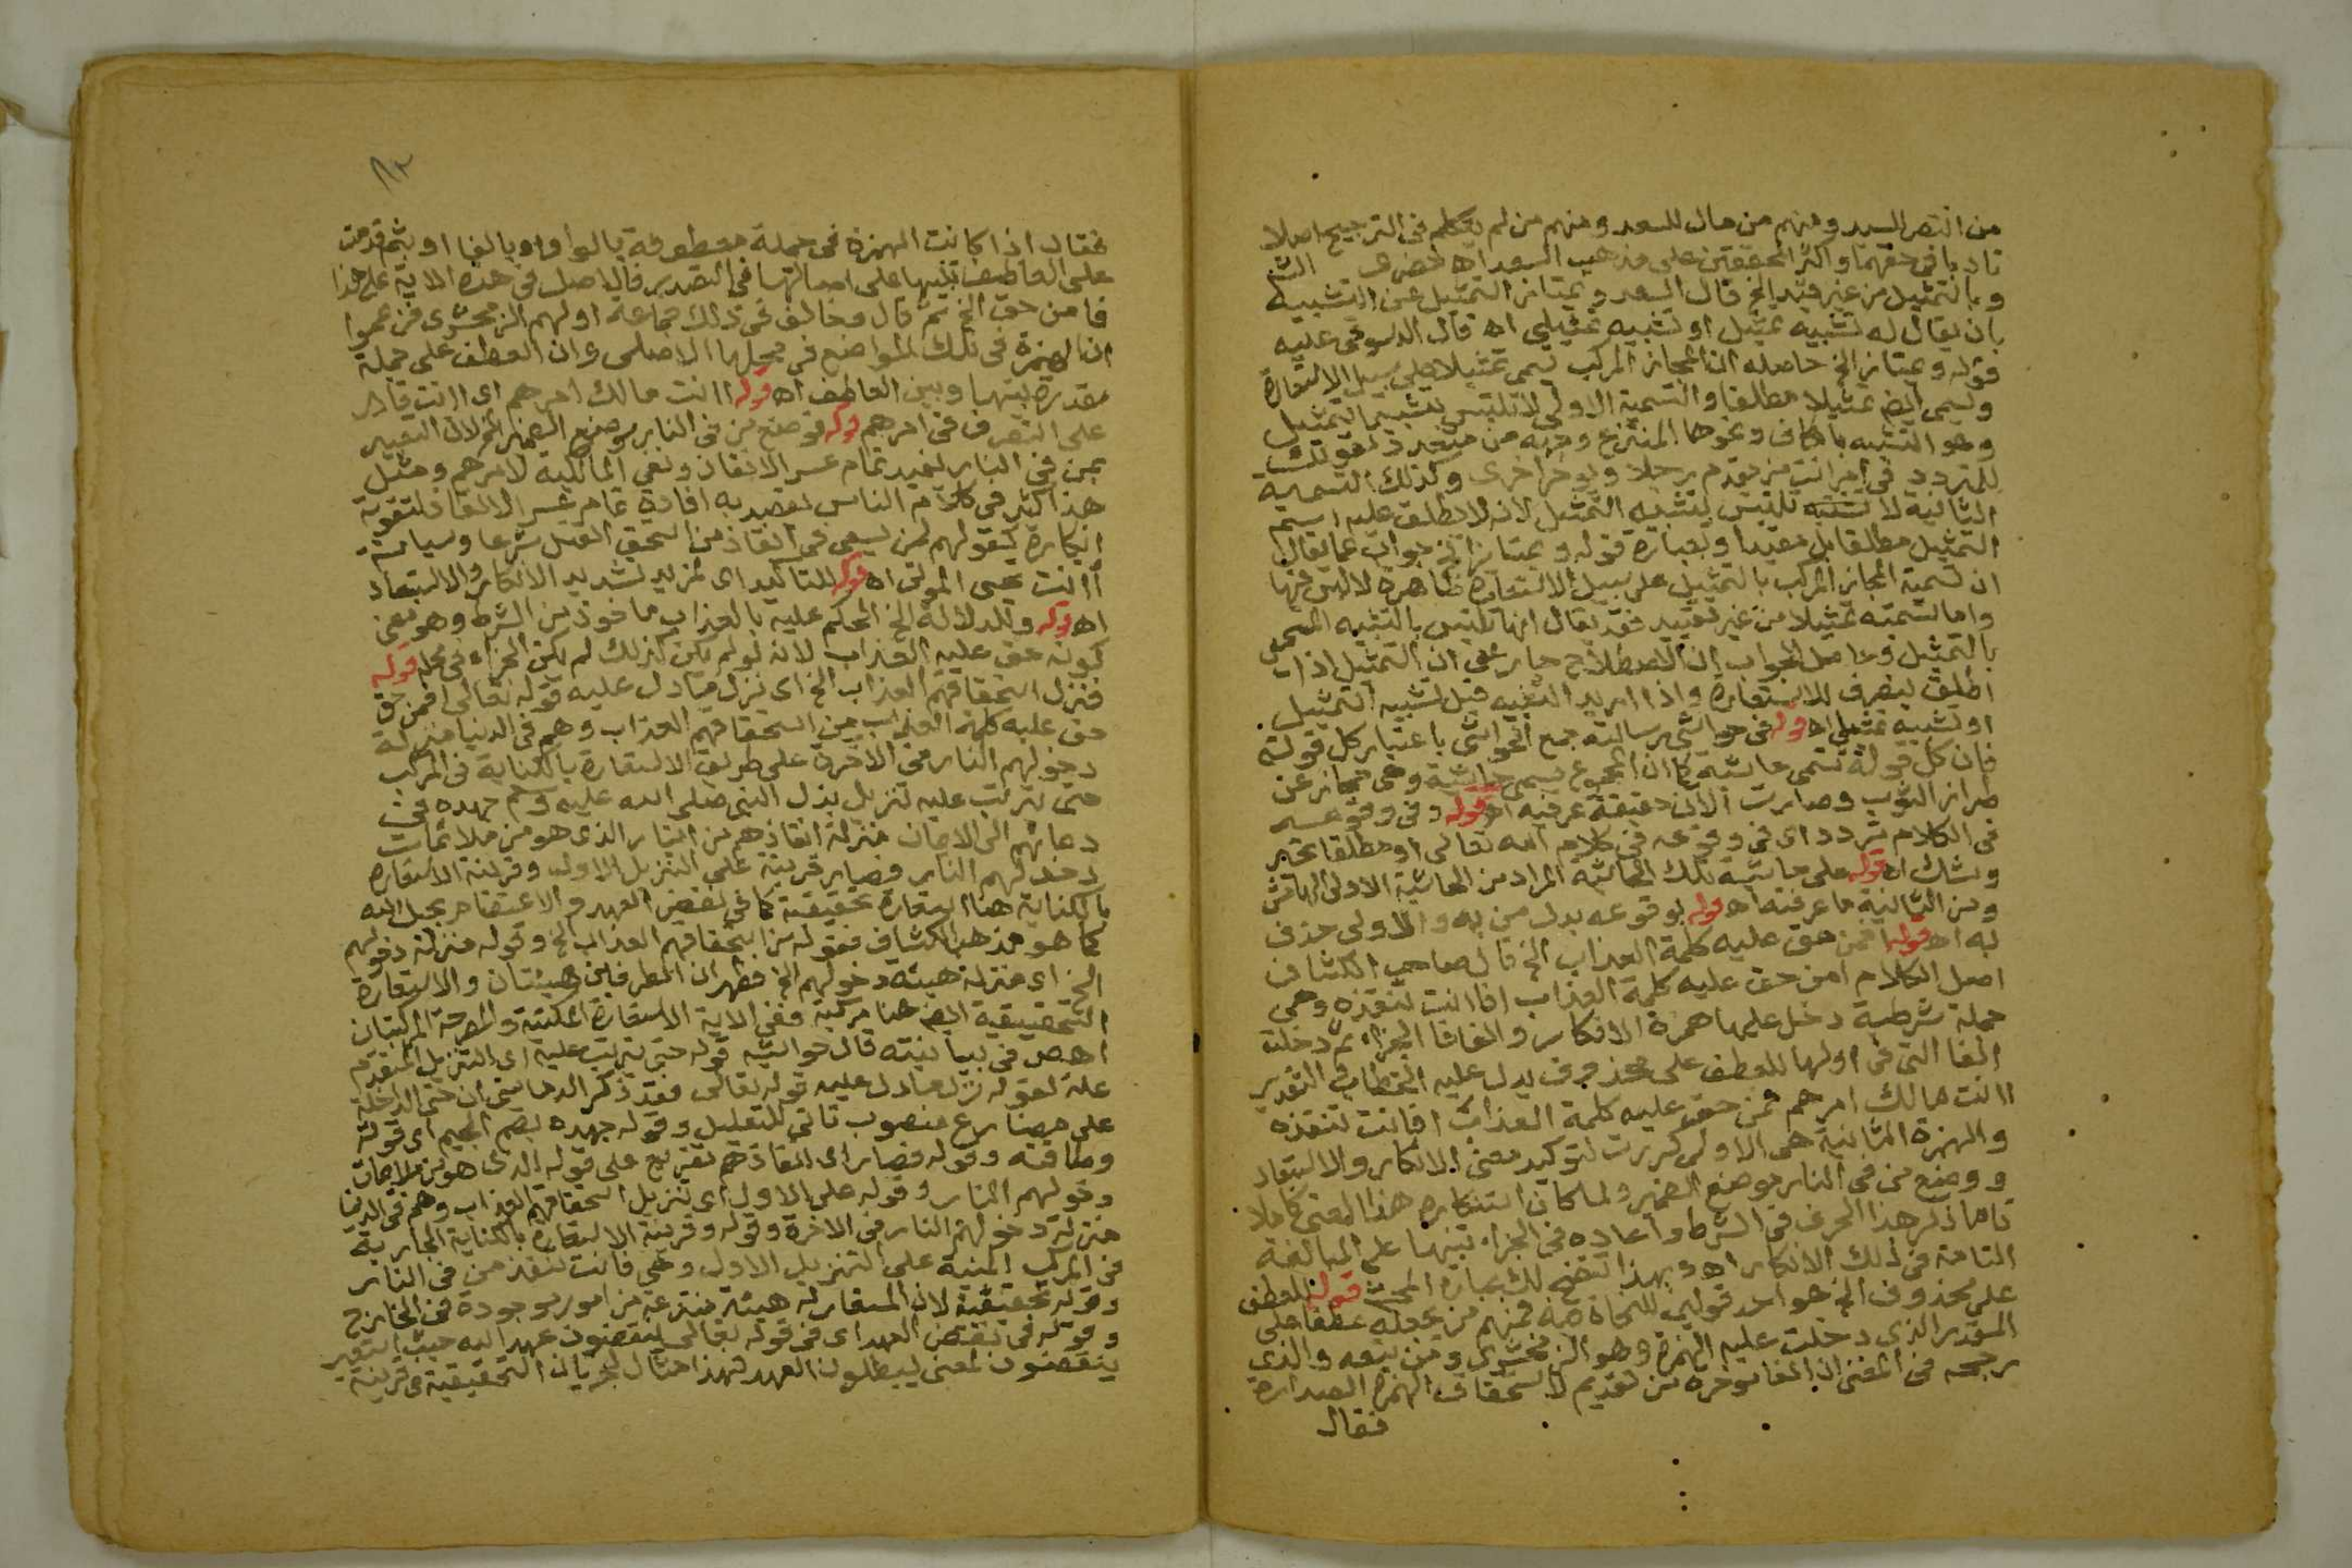 من انتصر للسيد ومنهم من مال للسعد ومنهم من لم يتكلم فى الترجيح اصلا
تادبا فى حقهما واكثر المحققين على مذهب السعد اه خضرى
وبالتمثيل من غير قيد الخ قال السعد ويمتاز التمثيل عن التشبيه
بان يقال له تشبيه تمثيل او تشبيه تمثيلى اه قال الدسوقى عليه
قوله ويمتاز الخ حاصله ان المجاز المركب تسمى تمثيلا على سبيل الاستعارة
ويسمى ايضا تمثيلا مطلقا والتسمية الاولى لا تلتبس بتشبيه التمثيل
وهو التشبيه بالكاف ونحوها المنتزع وجهه من متعدد كقولك
للمتردد فى امر انت كمن يقدم رجلا ويؤخر اخرى وكذلك التسمية
الثانية لا تلتبس بتشبيه التمثيل لانه لا يطلق عليه اسم
التمثيل مطلقا بل مقيدا وبعبارة قوله ويمتاز الخ جواب عما يقال
ان تسمية المجاز المركب بالتمثيل على سبيل الاستعارة ظاهرة لا لبس فيها
واما تسمته تمثيلا من غير تقييد فقد يقال انها تلتبس بالتشبيه المسمى
بالتمثيل وحاصل الجواب ان الاصطلاح جار على ان التمثيل اذا
اطلق ينصرف للاستعارة واذا اريد التشبيه قيل تشبيه التمثيل
او تشبيه تمثيلى اه قوله فى حواشى رسالته جمع الحواشى باعتبار كل قولة
فان كل قولة تسمى حاشية كما ان المجموع يسمى حاشية وهى مجاز عن
طراز الثوب وصارت الان حقيقة عرفيه اه قوله وفى وقوعه
فى الكلام تردد اى فى وقوعه فى كلام الله تعالى او مطلقا تحير
وشك اه قوله على حاشية تلك الحاشية المراد من الحاشية الاولى الهامش
ومن الثانية ما عرفته اه قوله بوقوعه بدل من به والاولى حذف
به اه قوله افمن حق عليه كلمة العذاب الخ قال صاحب الكشاف
اصل الكلام امن حق عليه كلمة العذاب افاانت تنقذه وهى
جملة شرطية دخل عليها همزة الانكار والفا فا الجزاء ثم دخلت
الفا التى فى اولها للعطف على محذوف يدل عليه الخطاب فى التقدير
اانت مالك امرهم فمن حق عليه كلمة العذاب افانت تنقذه
والهمزة الثانية هى الاولى كررت لتوكيد معنى الانكار والاستبعاد
ووضع من فى النار موضع الضمير ولما كان استنكاره هذا المعنى كاملا
تاما ذكر هذا الحرف فى الشرط واعاده فى الجزاء تنبيها على المبالغة
التامة فى ذلك الانكار اه وبهذا اتضح لك عبارة المحشى قوله للعطف
على محذوف الخ هو احد قولين للنحاة فمنهم من يجعله عطفا على
المقدر الذى دخلت عليه الهمزة وهو الزمخشرى ومن تبعه والذى
رجحه فى المغنى ان الفا موخرة من تقديم لاستحقاق الهمزة الصدارة
فقال
فقال اذا كانت الهمزة فى جملة معطوفة بالواو او بالفا او بثم قدمت
على العاطف تنبيها على اصالتها فى التصدير فالاصل فى هذه الاية على هذا
فامن حق الخ ثم قال وخالف فى ذلك جماعة اولهم الزمخشرى فزعموا
ان الهمزة فى تلك المواضع فى محلها الاصلى وان العطف على جملة
مقدرة بينها وبين العاطف اه قوله اانت مالك امرهم اى اانت قادر
على التصرف فى امرهم قوله فوضع من فى النار موضع الضمير الخ لان التعبير
بمن فى النار يفيد تمام عسر الانقاذ ونفى المالكية لامرهم ومثل
هذا كثير فى كلام الناس يقصد به افادة تمام عسر الانقاذ لتقوية
انكاره كقولهم لمن يسعى فى انقاذ من استحق القتل شرعا وسياسة
أانت تحيى الموتى اه قوله للتاكيد اى لمزيد تشديد الانكار والاستبعاد
اه قوله وللدلالة الخ الحكم عليه بالعذاب ماخوذ من الشرط وهو معنى
كونه حق عليه العذاب لانه لو لم يكن كذلك لم يكن الجزاء فى محله قوله
فنزل استحقاقهم العذاب الخ اى نزل ما دل عليه قوله تعالى افمن حق
حق عليه كلمة العذاب من استحقاقهم العذاب وهم فى الدنيا منزلة
دخولهم النار فى الاخرة على طريق الاستعارة بالكناية فى المركب
حتى ترتب عليه تنزيل بذل النبى صلى الله عليه وسلم جهده فى
دعائهم الى الايمان منزلة انقاذهم من النار الذى هو من ملائمات
دخولهم النار فصار قرينة على التنزيل الاول وقرينة الاستعارة
بالكناية هنا استعارة تحقيقية كما فى نقض العهد والاعتصام بحبل الله
كما هو مذهب الكشاف فقوله من استحقاقهم العذاب الخ وقوله منزلة دخولهم
الخ اى منزلة هيئة دخولهم الخ فظهر ان الطرفين هيئتان والاستعارة
التحقيقية ايضا هنا مركبة ففى الاية الاستعارة المكنية والمصرحة المركبتان
اهص فى بيانيته قال حواشيه قوله حتى يترتب عليه اى التنزيل المتقدم
علة لقوله نزل ما دل عليه قوله تعالى فقد ذكر الدمامينى ان حتى الداخلة
على مضارع منصوب تاتى للتعليل وقوله جهده بضم الجيم اى قوته
وطاقته وقوله فصار اى انقاذهم تفريع على قوله الذى هو من ملايمات
دخولهم النار وقوله على الاول اى تنزيل استحقاقهم العذاب وهم فى الدنيا
منزلة دخولهم النار فى الاخرة وقوله وقرينة الاستعارة بالكناية الجارية
فى المركب المبنية على التنزيل الاول وهى فانت تنقذ من فى النار
وقوله تحقيقية لان المستعار له هيئة منتزعة من امور موجودة فى الخارج
وقوله فى نقض العهد اى فى قوله تعالى ينقضون عهد الله حيث استعير
ينقضون لمعنى يبطلون العهد فهذا مثال لجريان التحقيقية فى قرينة